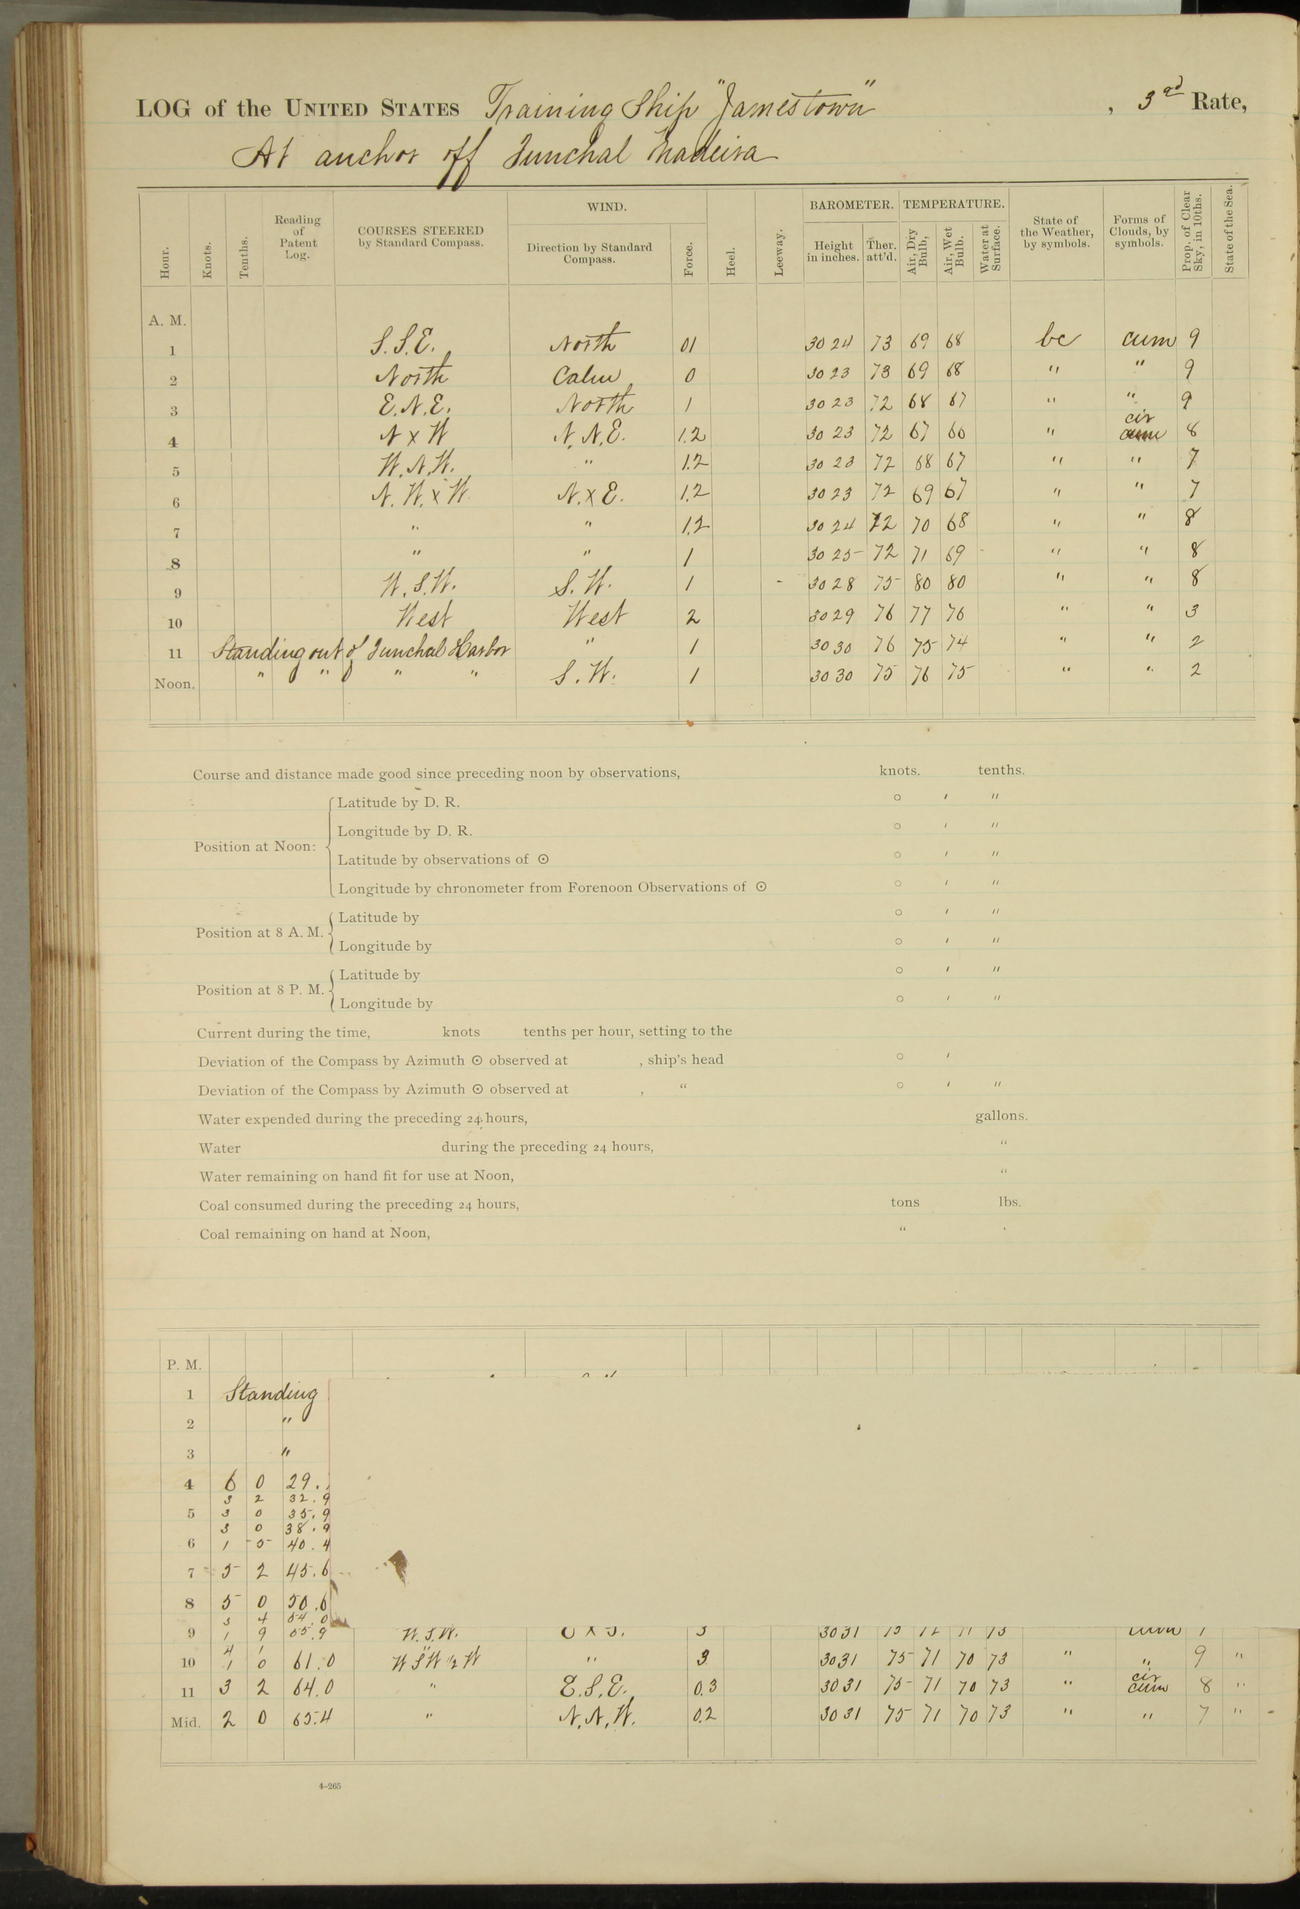 LOG of the UNITED STATES Training Ship "Jamestown", 3rd Rate,
At anchor off Funchal Madeira
Hour. Knots. Tenths. Reading of Patent Log. COURSES STEERED by Standard Compass. WIND. Direction by Standard Compass. Force. Heel. Leeway. BAROMETER. Height in inches. Ther. att'd. TEMPERATURE. Air, Dry Bulb, Air, Wet Bulb. Water at Surface. State of the Weather, by symbols. Forms of Clouds, by symbols. Prop. of Clear Sky, in 10ths. State of the Sea.
A. M.
1 S.S.E. North 01 30 24 73 69 68 bc cum 9
2 North Calm 0 30 23 73 69 68 " " 9
3 E.N.E. North 1 30 23 72 68 67 " " 9
4 N x W N.N.E. 1.2 30 23 72 67 66 " cir cum 8
5 W.N.W. " 1.2 30 23 72 68 67 " " 7
6 N.W. x W. N. x E. 1.2 30 23 72 69 67 " " 7
7 " " 1.2 30 24 72 70 68 " " 8
8 " " 1 30 25 72 71 69 " " 8
9 W.S.W. S.W. 1 30 28 75 80 80 " " 8
10 West West 2 30 29 76 77 76 " " 3
11 Standing out of Funchal Harbor " 1 30 30 76 75 74 " " 2
Noon. " " " " S.W. 1 30 30 75 76 75 " " 2
Course and distance made good since preceding noon by observations, knots. tenths.
Position at Noon:
Latitude by D. R. ° ' "
Longitude by D. R. ° ' "
Latitude by observations of ⊙ ° ' "
Longitude by chronometer from Forenoon Observations of ⊙ ° ' "
Position at 8 A. M.
Latitude by ° ' "
Longitude by ° ' "
Position at 8 P. M.
Latitude by ° ' "
Longitude by ° ' "
Current during the time, knots tenths per hour, setting to the
Deviation of the Compass by Azimuth ⊙ observed at , ship's head ° '
Deviation of the Compass by Azimuth ⊙ observed at , " ° ' "
Water expended during the preceding 24 hours, gallons.
Water during the preceding 24 hours, "
Water remaining on hand fit for use at Noon, "
Coal consumed during the preceding 24 hours, tons lbs.
Coal remaining on hand at Noon, "
P. M.
1 Standing
2 "
3 "
4 6 0 29.
3 2 32.9
5 3 0 35.9
3 0 38.9
6 1 5 40.4
7 5 2 45.6
8 5 0 50.6
3 4 54.0
9 1 9 55.9 W.S.W. 3 30 31 73
4 1
10 1 0 61.0 W S W ½ W " 3 30 31 75 71 70 73 " " 9 "
11 3 2 64.0 " E.S.E. 0.3 30 31 75 71 70 73 " cir cum 8 "
Mid. 2 0 65.4 " N.N.W. 0.2 30 31 75 71 70 73 " " 7 "
4-265